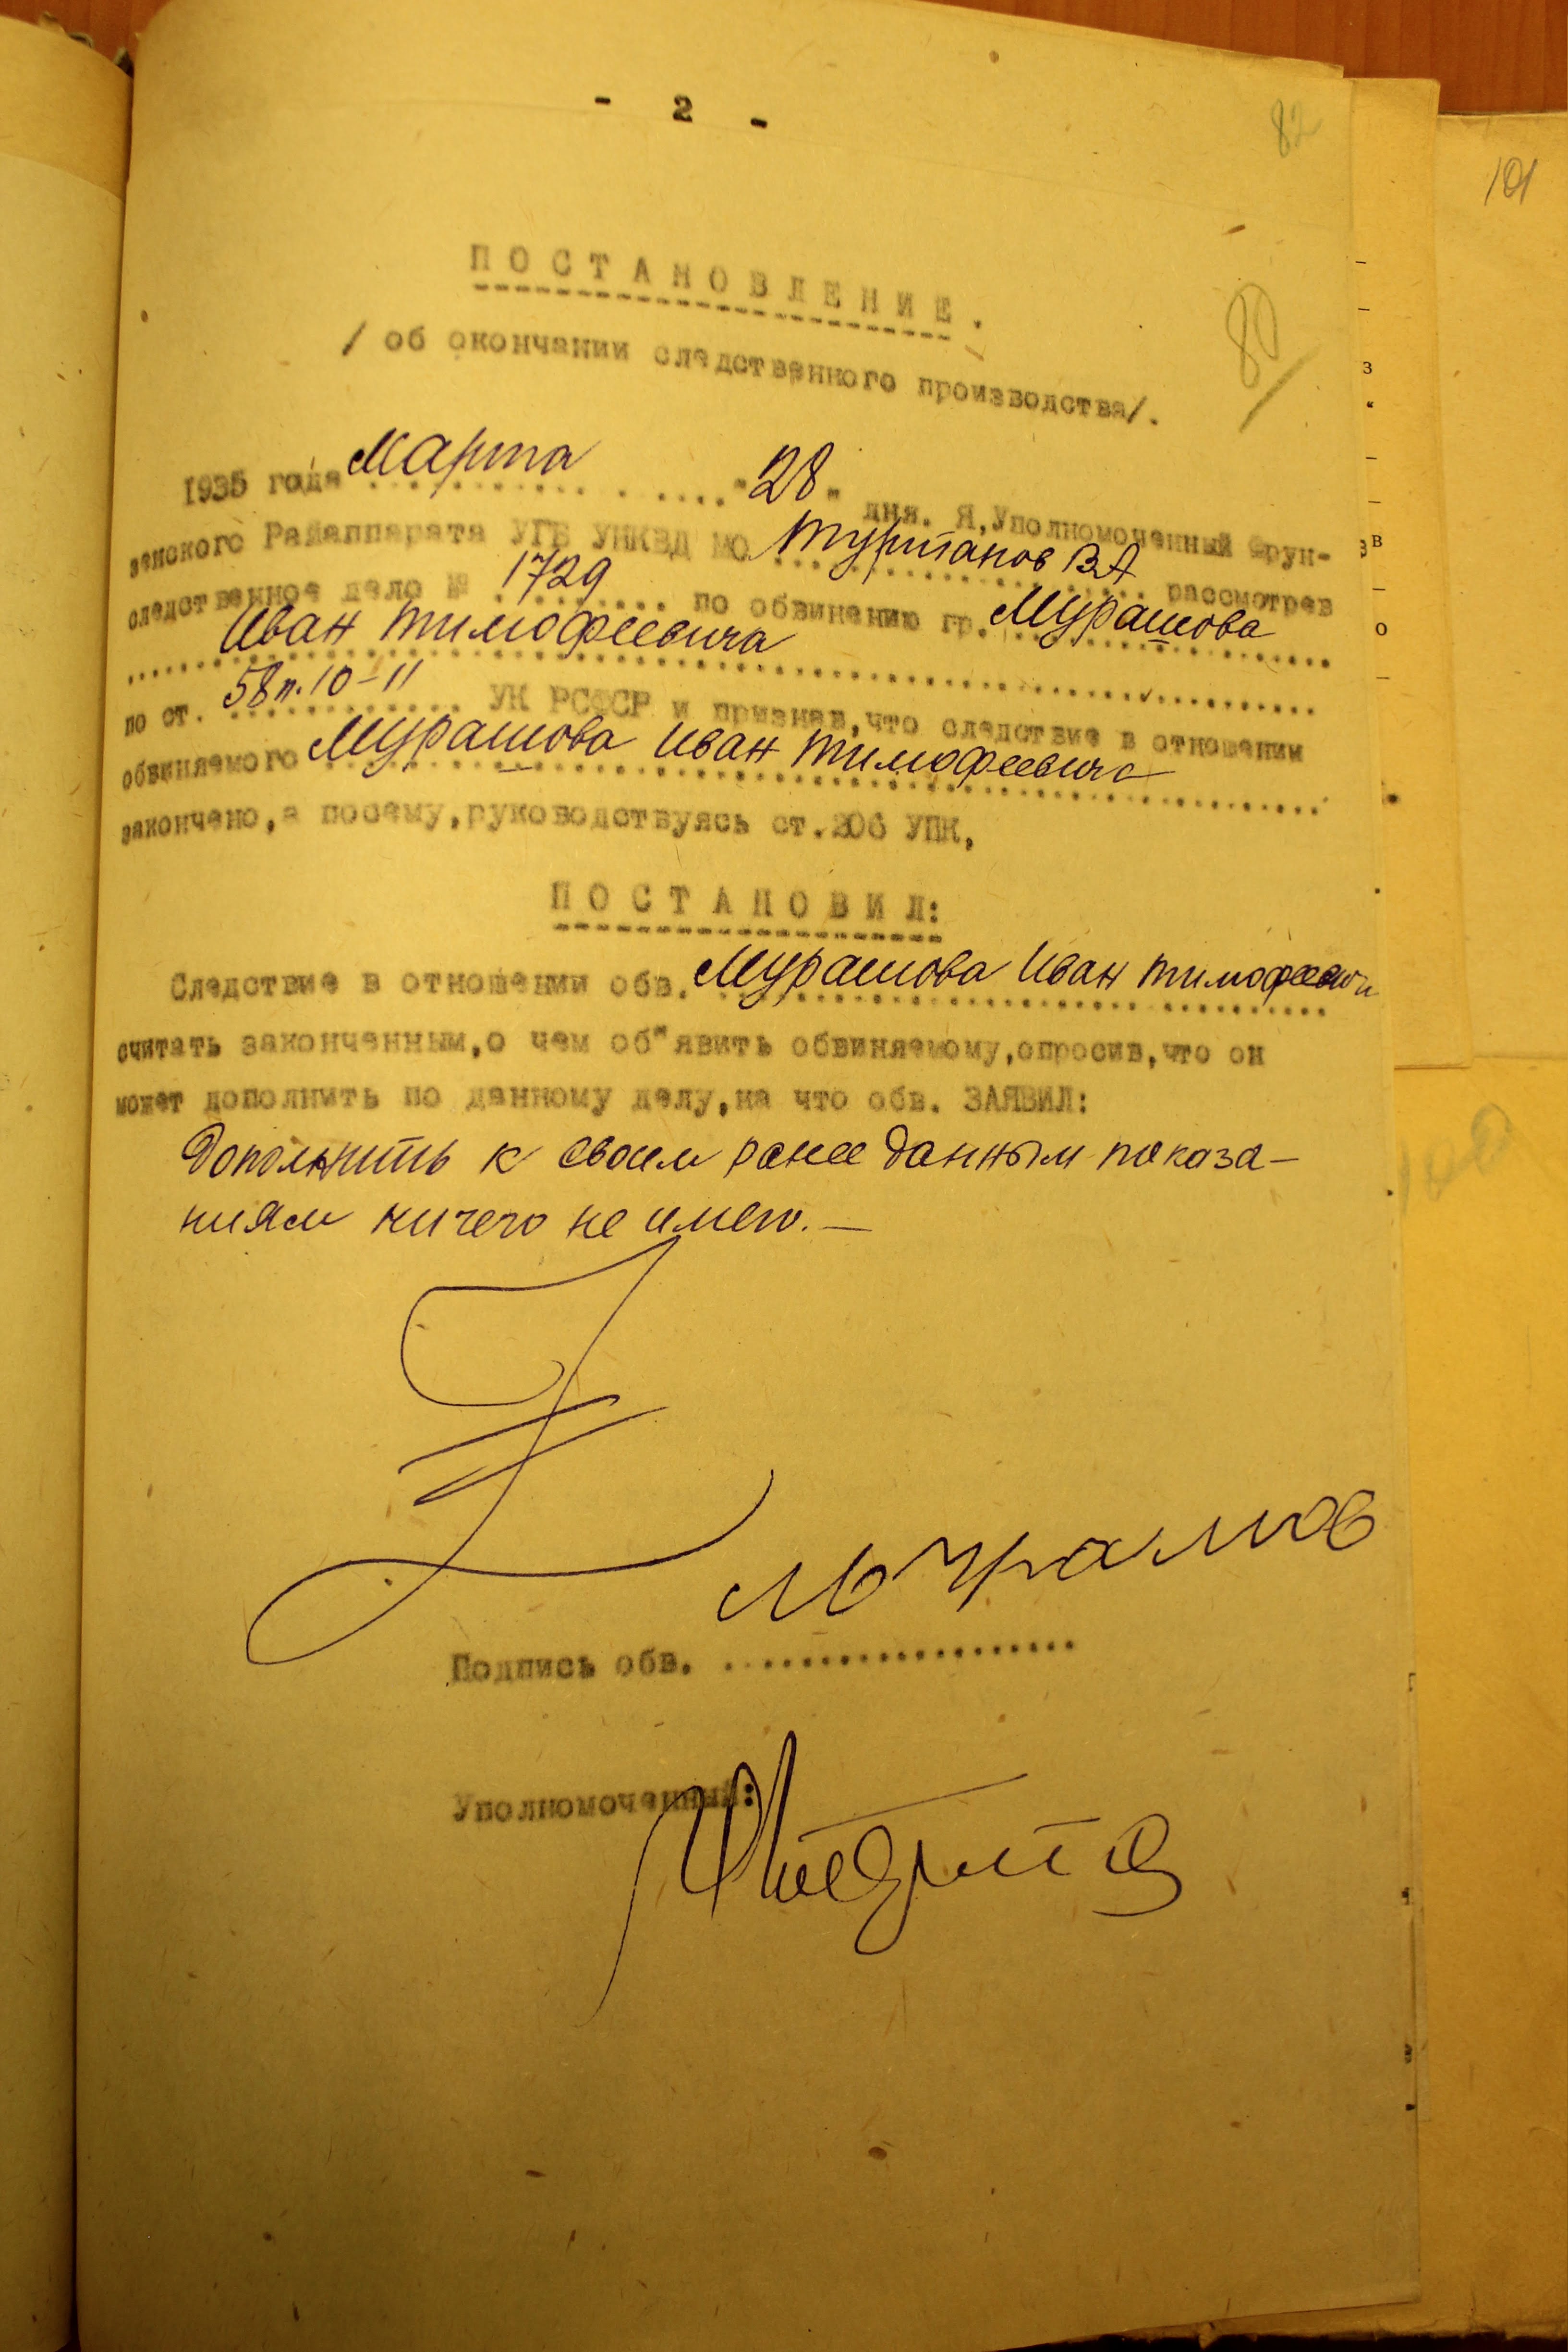 - 2 -
82
101
ПОСТАНОВЛЕНИЕ.
80
/ об окончании следственного производства/.
1935 года Марта "28" дня. Я, Уполномоченный Фрун-
зенского Райаппарата УГБ УНКВД МО Турианов ВА рассмотрев
следственное дело № 1729 по обвинению гр. Мурашова
Иван Тимофеевича
по ст. 58 п. 10-11 УК РСФСР и признав, что следствие в отношении
обвиняемого Мурашова Иван Тимофеевича
закончено, а посему, руководствуясь ст. 206 УПК,
ПОСТАНОВИЛ:
Следствие в отношении обв. Мурашова Иван Тимофееви
считать законченным, о чем об"явить обвиняемому, опросив, что он
может дополнить по данному делу, на что обв. ЗАЯВИЛ:
Дополнить к своим ранее данным показа-
ниям ничего не имею. —
Мурашов
Подпись обв.
Уполномоченный: